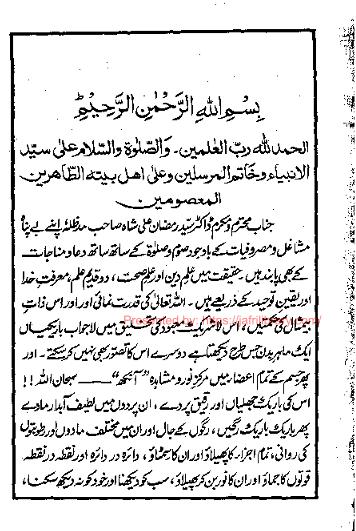 بِسْمِ اللهِ الرَّحْمٰنِ الرَّحِیْمِ
الحمد للہ ربّ العٰلمین۔ والصّلوٰۃ والسّلام علیٰ سیّد
الانبیاء وخاتم المرسلین وعلیٰ اھل بیتہ الطّاھرین
المعصومین
جناب محترم ومکرم ڈاکٹر سید رمضان علی شاہ صاحب مدظلہٗ اپنے بے پناہ
مشاغل و مصروفیات کے باوجود صوم و صلوٰۃ کے ساتھ ساتھ دعا و مناجات
کے بھی پابند ہیں۔ حقیقت میں علمِ دین اور علمِ صحت، دو قدیم علم، معرفتِ خدا
اور یقینِ توحید کے ذریعے ہیں۔ اللہ تعالیٰ کی قدرت نمائی اور اس ذاتِ
بیمثال کی حکمتیں، اس لاشریک معبود کی تخلیق میں لاجواب باریکیاں
ایک ماہر بدن جس طرح دیکھتا ہے دوسرے اس کا تصور بھی نہیں کرسکتے۔ اور
پھر جسم کے تمام اعضا میں مرکزِ نور و مشاہدہ "آنکھ" ۔۔۔ سبحان اللہ!!
اس کی باریک جھلیاں اور رقیق پردے، ان پردوں میں لطیف آبدار مادے
پھر باریک باریک رگیں، رگوں کے جال اور ان میں مختلف مادوں اور رطوبتوں
کی روانی، تمام اجزاء کا پھیلاؤ اور ان کا جماؤ، دائرہ در دائرہ اور نقطہ در نقطہ
قوتوں کا جماؤ اور ان کا نور بن کر پھیلاؤ، سب کو دیکھنا اور خود کو نہ دیکھ سکنا،